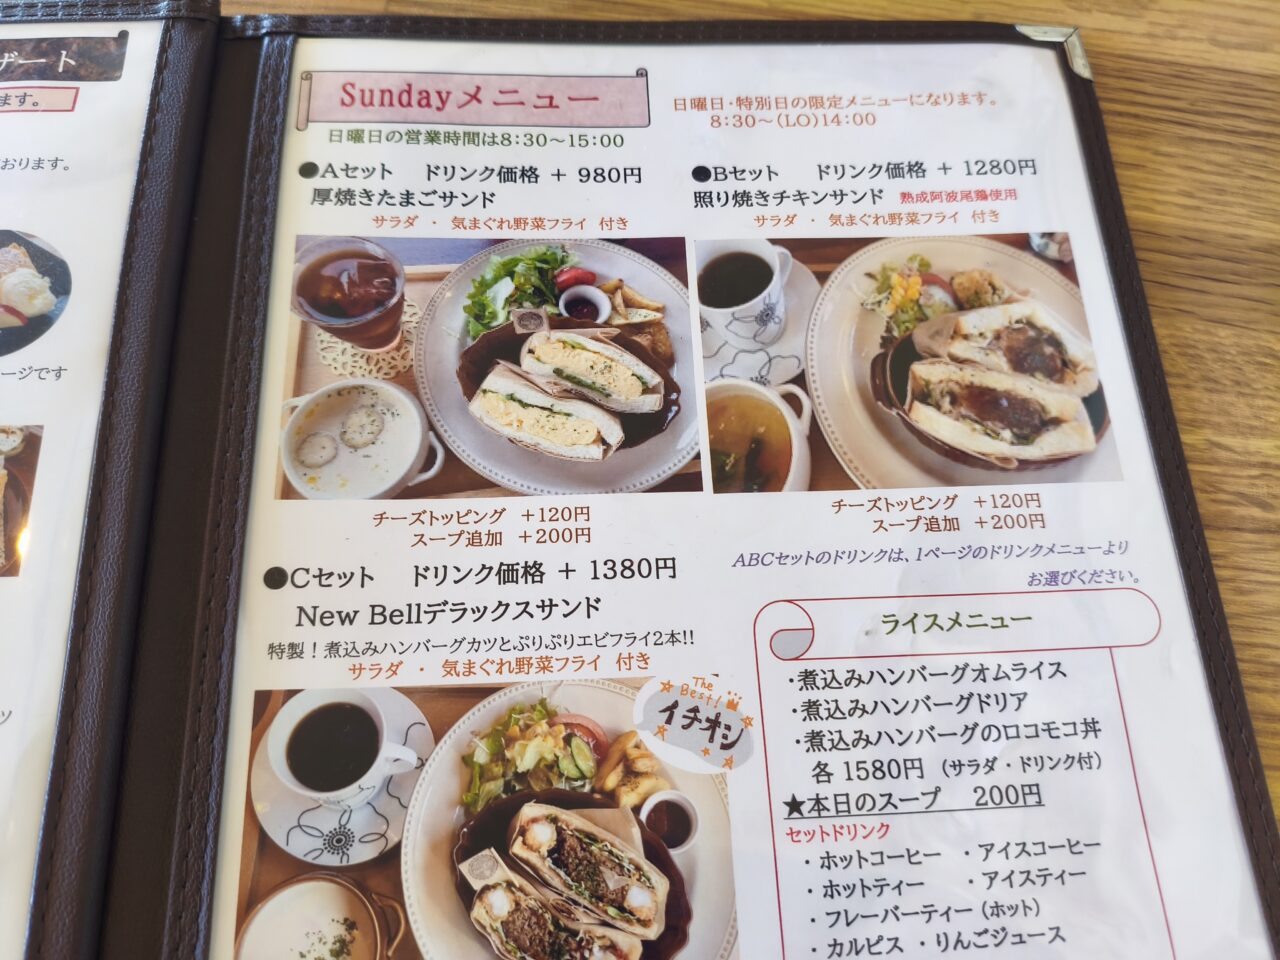 ザート
ます。
おります。
ージです
Sundayメニュー
日曜日の営業時間は8:30～15:00
日曜日・特別日の限定メニューになります。
8:30～(LO)14:00
●Aセット　ドリンク価格 + 980円
厚焼きたまごサンド
サラダ ・ 気まぐれ野菜フライ 付き
●Bセット　ドリンク価格 + 1280円
照り焼きチキンサンド 熟成阿波尾鶏使用
サラダ ・ 気まぐれ野菜フライ 付き
チーズトッピング +120円
スープ追加 +200円
チーズトッピング +120円
スープ追加 +200円
ABCセットのドリンクは、1ページのドリンクメニューより
お選びください。
●Cセット　ドリンク価格 + 1380円
New Bellデラックスサンド
特製！煮込みハンバーグカツとぷりぷりエビフライ2本!!
サラダ ・ 気まぐれ野菜フライ 付き
The Best!
イチオシ
ライスメニュー
・煮込みハンバーグオムライス
・煮込みハンバーグドリア
・煮込みハンバーグのロコモコ丼
各 1580円 (サラダ・ドリンク付)
★本日のスープ　200円
セットドリンク
・ホットコーヒー ・アイスコーヒー
・ホットティー ・アイスティー
・フレーバーティー (ホット)
・カルピス ・りんごジュース